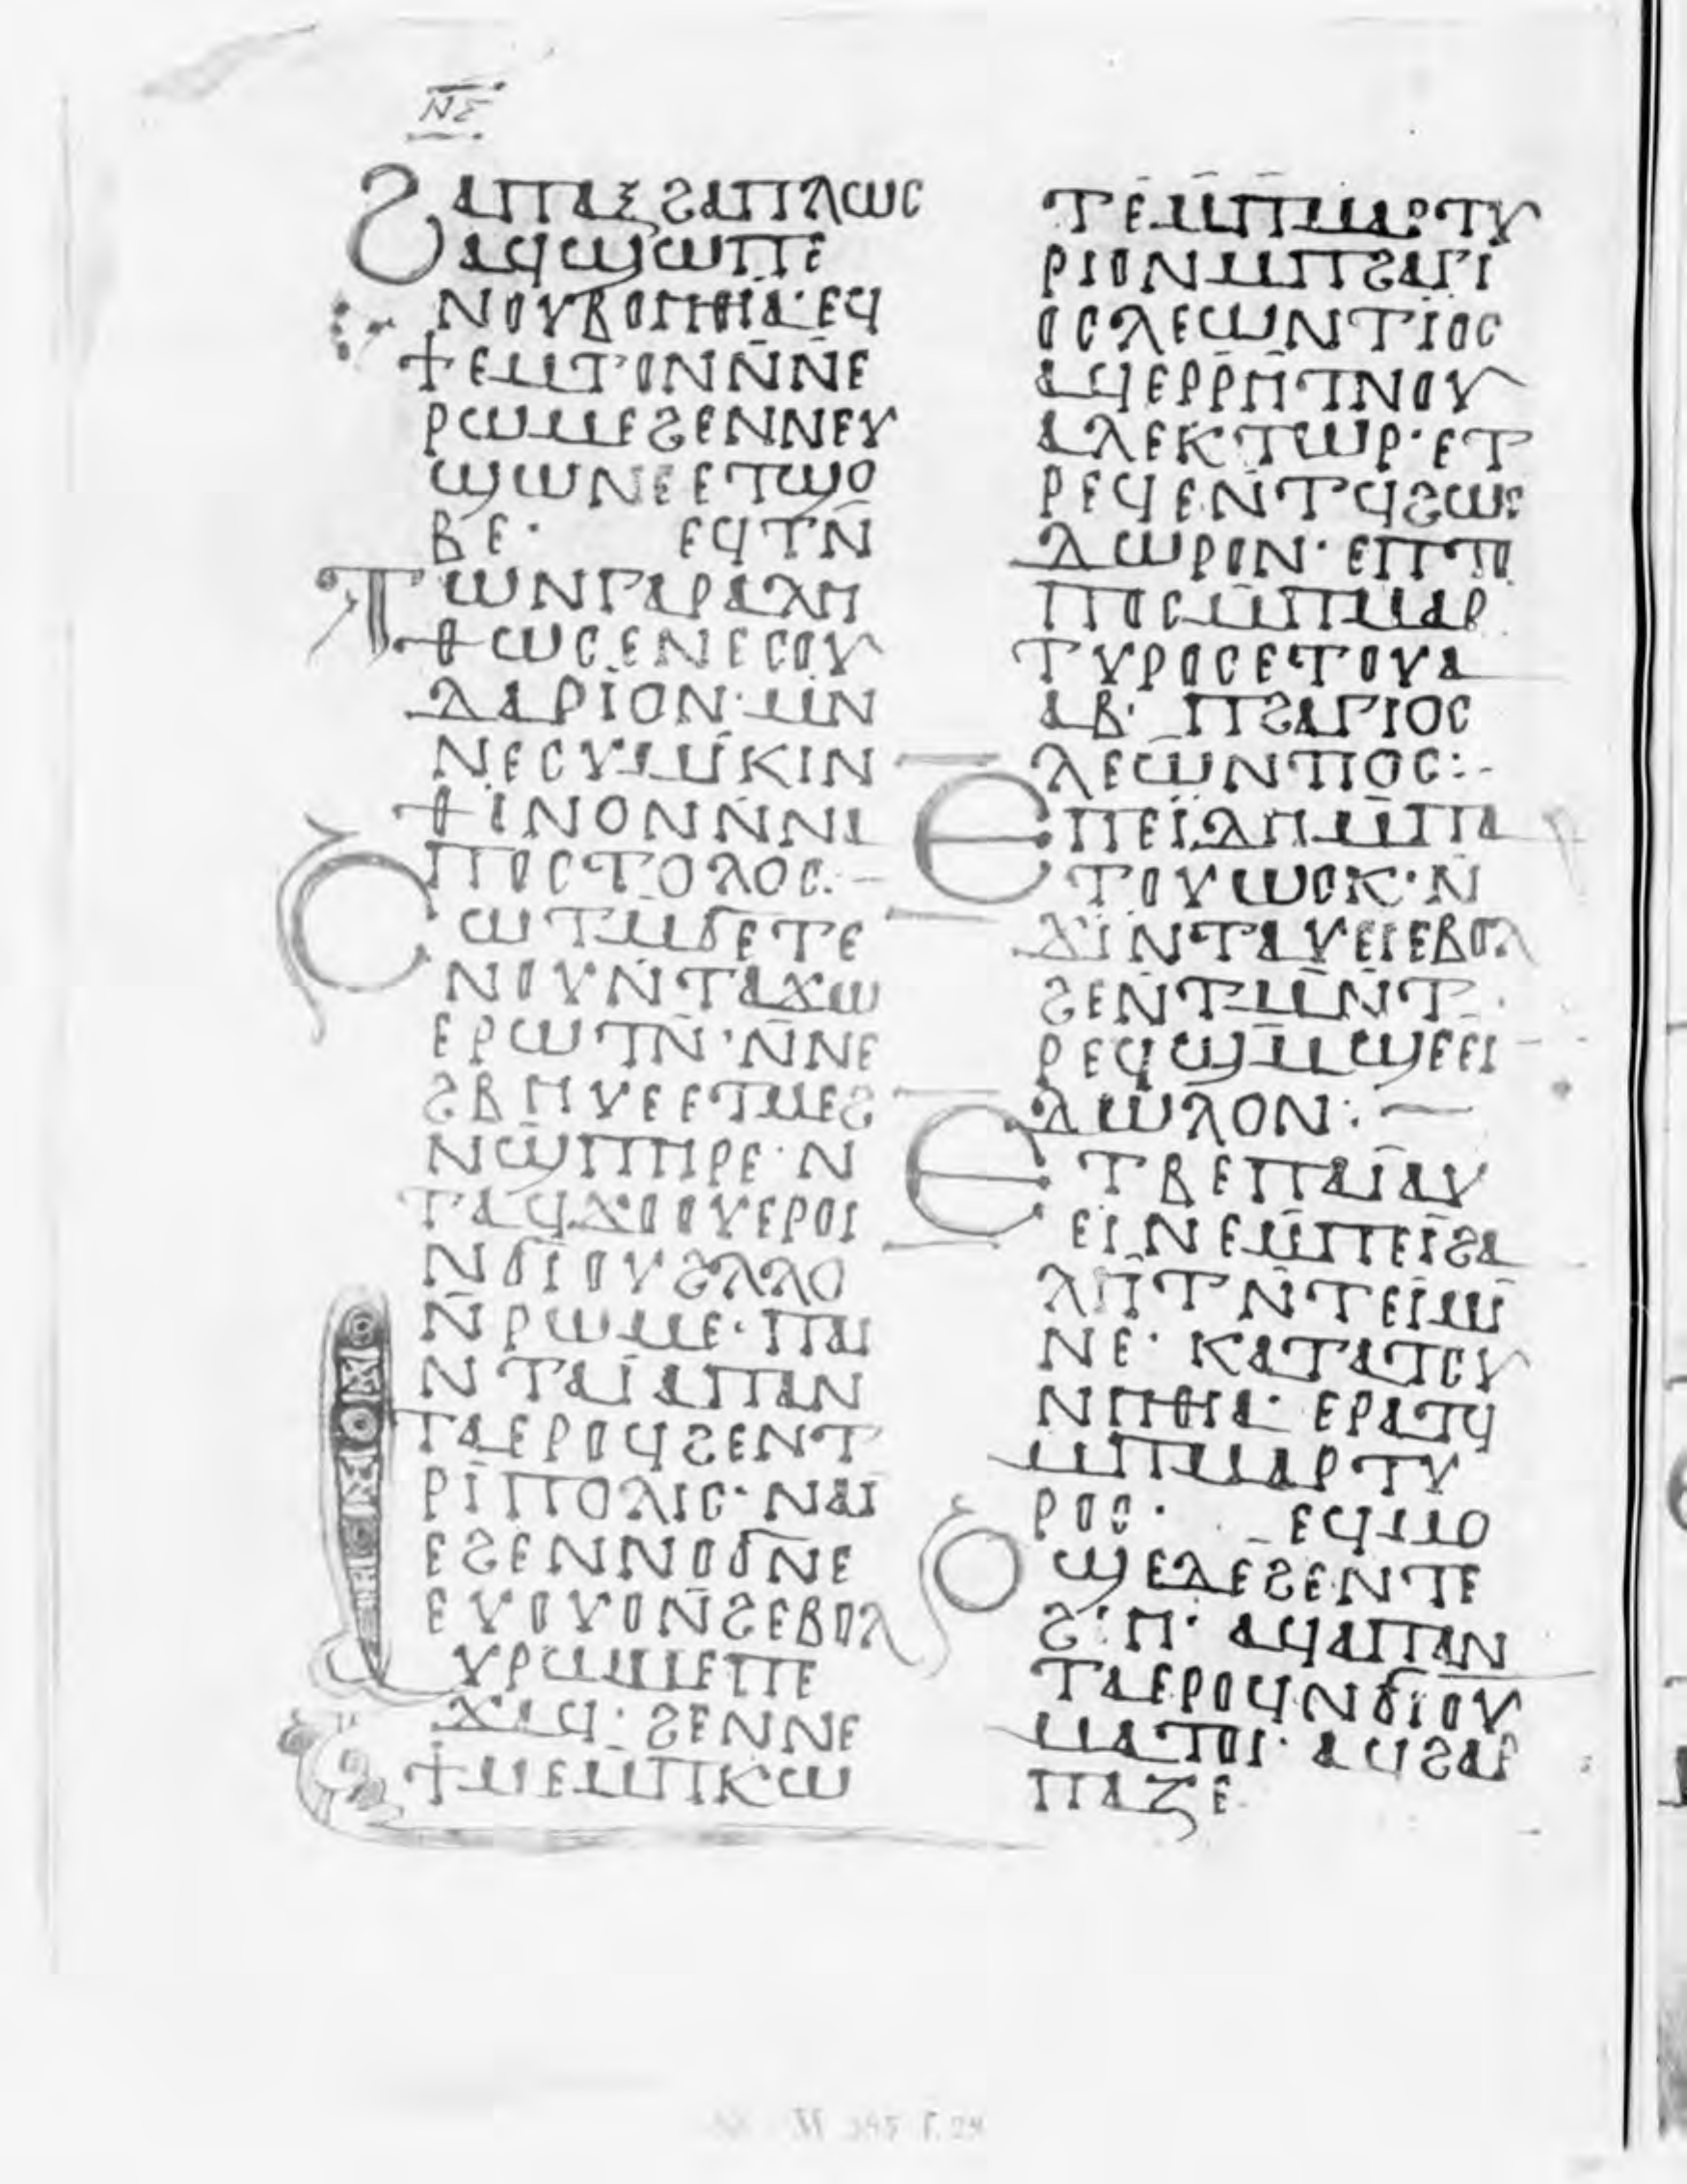 ⲛⲉ
ϩⲁⲡⲁⲝϩⲁⲡⲗⲱⲥ
ⲁϥϣⲱⲡⲉ
ⲛⲟⲩⲃⲟⲏⲑⲓⲁ·ⲉϥ
ϯⲉⲙⲧⲟⲛⲛ̄ⲛ̄ⲉ
ⲣⲱⲙⲉϩⲉⲛⲛⲉⲩ
ϣⲱⲛⲉⲉⲧϣⲟ
ⲃⲉ· ⲉϥⲧⲛ̄
ⲧⲱⲛⲅⲁⲣⲁⲗⲏ
ⲑⲱⲥⲉⲛⲉⲥⲟⲩ
ⲇⲁⲣⲓⲟⲛ·ⲙⲛ̄
ⲛⲉⲥⲩⲙⲓ̈ⲕⲓⲛ
ⲑⲓⲛⲟⲛⲛ̄ⲛⲁ
ⲡⲟⲥⲧⲟⲗⲟⲥ:–
ⲥⲱⲧⲙ̄ϭⲉⲧⲉ
ⲛⲟⲩⲛ̄ⲧⲁϫⲱ
ⲉⲣⲱⲧⲛ̄·ⲛ̄ⲛⲉ
ϩⲃⲏⲩⲉⲉⲧⲙⲉϩ
ⲛϣ̄ⲡⲏⲣⲉ·ⲛ
ⲧⲁϥϫⲟⲟⲩⲉⲣⲟⲓ
ⲛϭⲓⲟⲩϩⲗⲗⲟ
ⲛ̄ⲣⲱⲙⲉ·ⲡⲁⲓ
ⲛⲧⲁⲓ̈ⲁⲡⲁⲛ
ⲧⲁⲉⲣⲟϥϩⲉⲛⲧ
ⲣⲓ̈ⲡⲟⲗⲓⲥ·ⲛⲁⲓ̈
ⲉϩⲉⲛⲛⲟϭⲛⲉ
ⲉⲩⲟⲩⲟⲛϩ̄ⲉⲃⲟⲗ
ⲩⲣⲱⲙⲉⲡⲉ
ϫⲁϥ·ϩⲉⲛⲛⲉ
ϯⲙⲉⲙ̄ⲡⲕⲱ
ⲧⲉⲙ̄ⲡ̄ⲙⲁⲣⲧⲩ
ⲣⲓⲟⲛⲙ̄ⲡϩⲁⲅⲓ
ⲟⲥⲗⲉⲱⲛⲧⲓ̈ⲟⲥ
ⲁϥⲉⲣⲣⲏ̄ⲧⲛⲟⲩ
ⲁⲗⲉⲕⲧⲱⲣ·ⲉⲧ
ⲣⲉϥⲉⲛ̄ⲧϥϩⲱⲥ
ⲇⲱⲣⲟⲛ·ⲉⲡⲧⲟ
ⲡⲟⲥⲙ̄ⲡⲙⲁⲣ
ⲧⲩⲣⲟⲥⲉⲧⲟⲩⲁ
ⲁⲃ· ⲡϩⲁⲅⲓⲟⲥ
ⲗⲉⲱⲛⲧⲓⲟⲥ:–
ⲉⲡⲉⲓ̈ⲇⲏⲙ̄ⲡⲁ
ⲧⲟⲩⲱⲥⲕ·ⲛ̄
ϫⲓⲛⲧⲁⲩⲉⲓⲉⲃⲟⲗ
ϩⲉⲛⲧⲙⲛ̄ⲧ
ⲣⲉϥϣⲙ̄ϣⲉⲉⲓ
ⲇⲱⲗⲟⲛ:–
ⲉⲧⲃⲉⲡⲁⲓ̈ⲁⲩ
ⲉⲓⲛⲉⲙ̄ⲡⲉⲓ̈ϩⲁ
ⲗⲏⲧⲛ̄ⲧⲉⲓ̈ⲙⲓ
ⲛⲉ· ⲕⲁⲧⲁⲧⲥⲩ
ⲛⲏⲑⲓⲁ· ⲉⲣⲁⲧϥ
ⲙ̄ⲡⲙⲁⲣⲧⲩ
ⲣⲟⲥ· ⲉϥⲙⲟ
ⲟϣⲉⲇⲉϩⲉⲛⲧⲉ
ϩⲓⲏ· ⲁϥⲁⲡⲁⲛ
ⲧⲁⲉⲣⲟϥⲛϭⲓⲟⲩ
ⲙⲁⲧⲟⲓ·ⲁϥϩⲁⲣ
ⲡⲁⲍⲉ